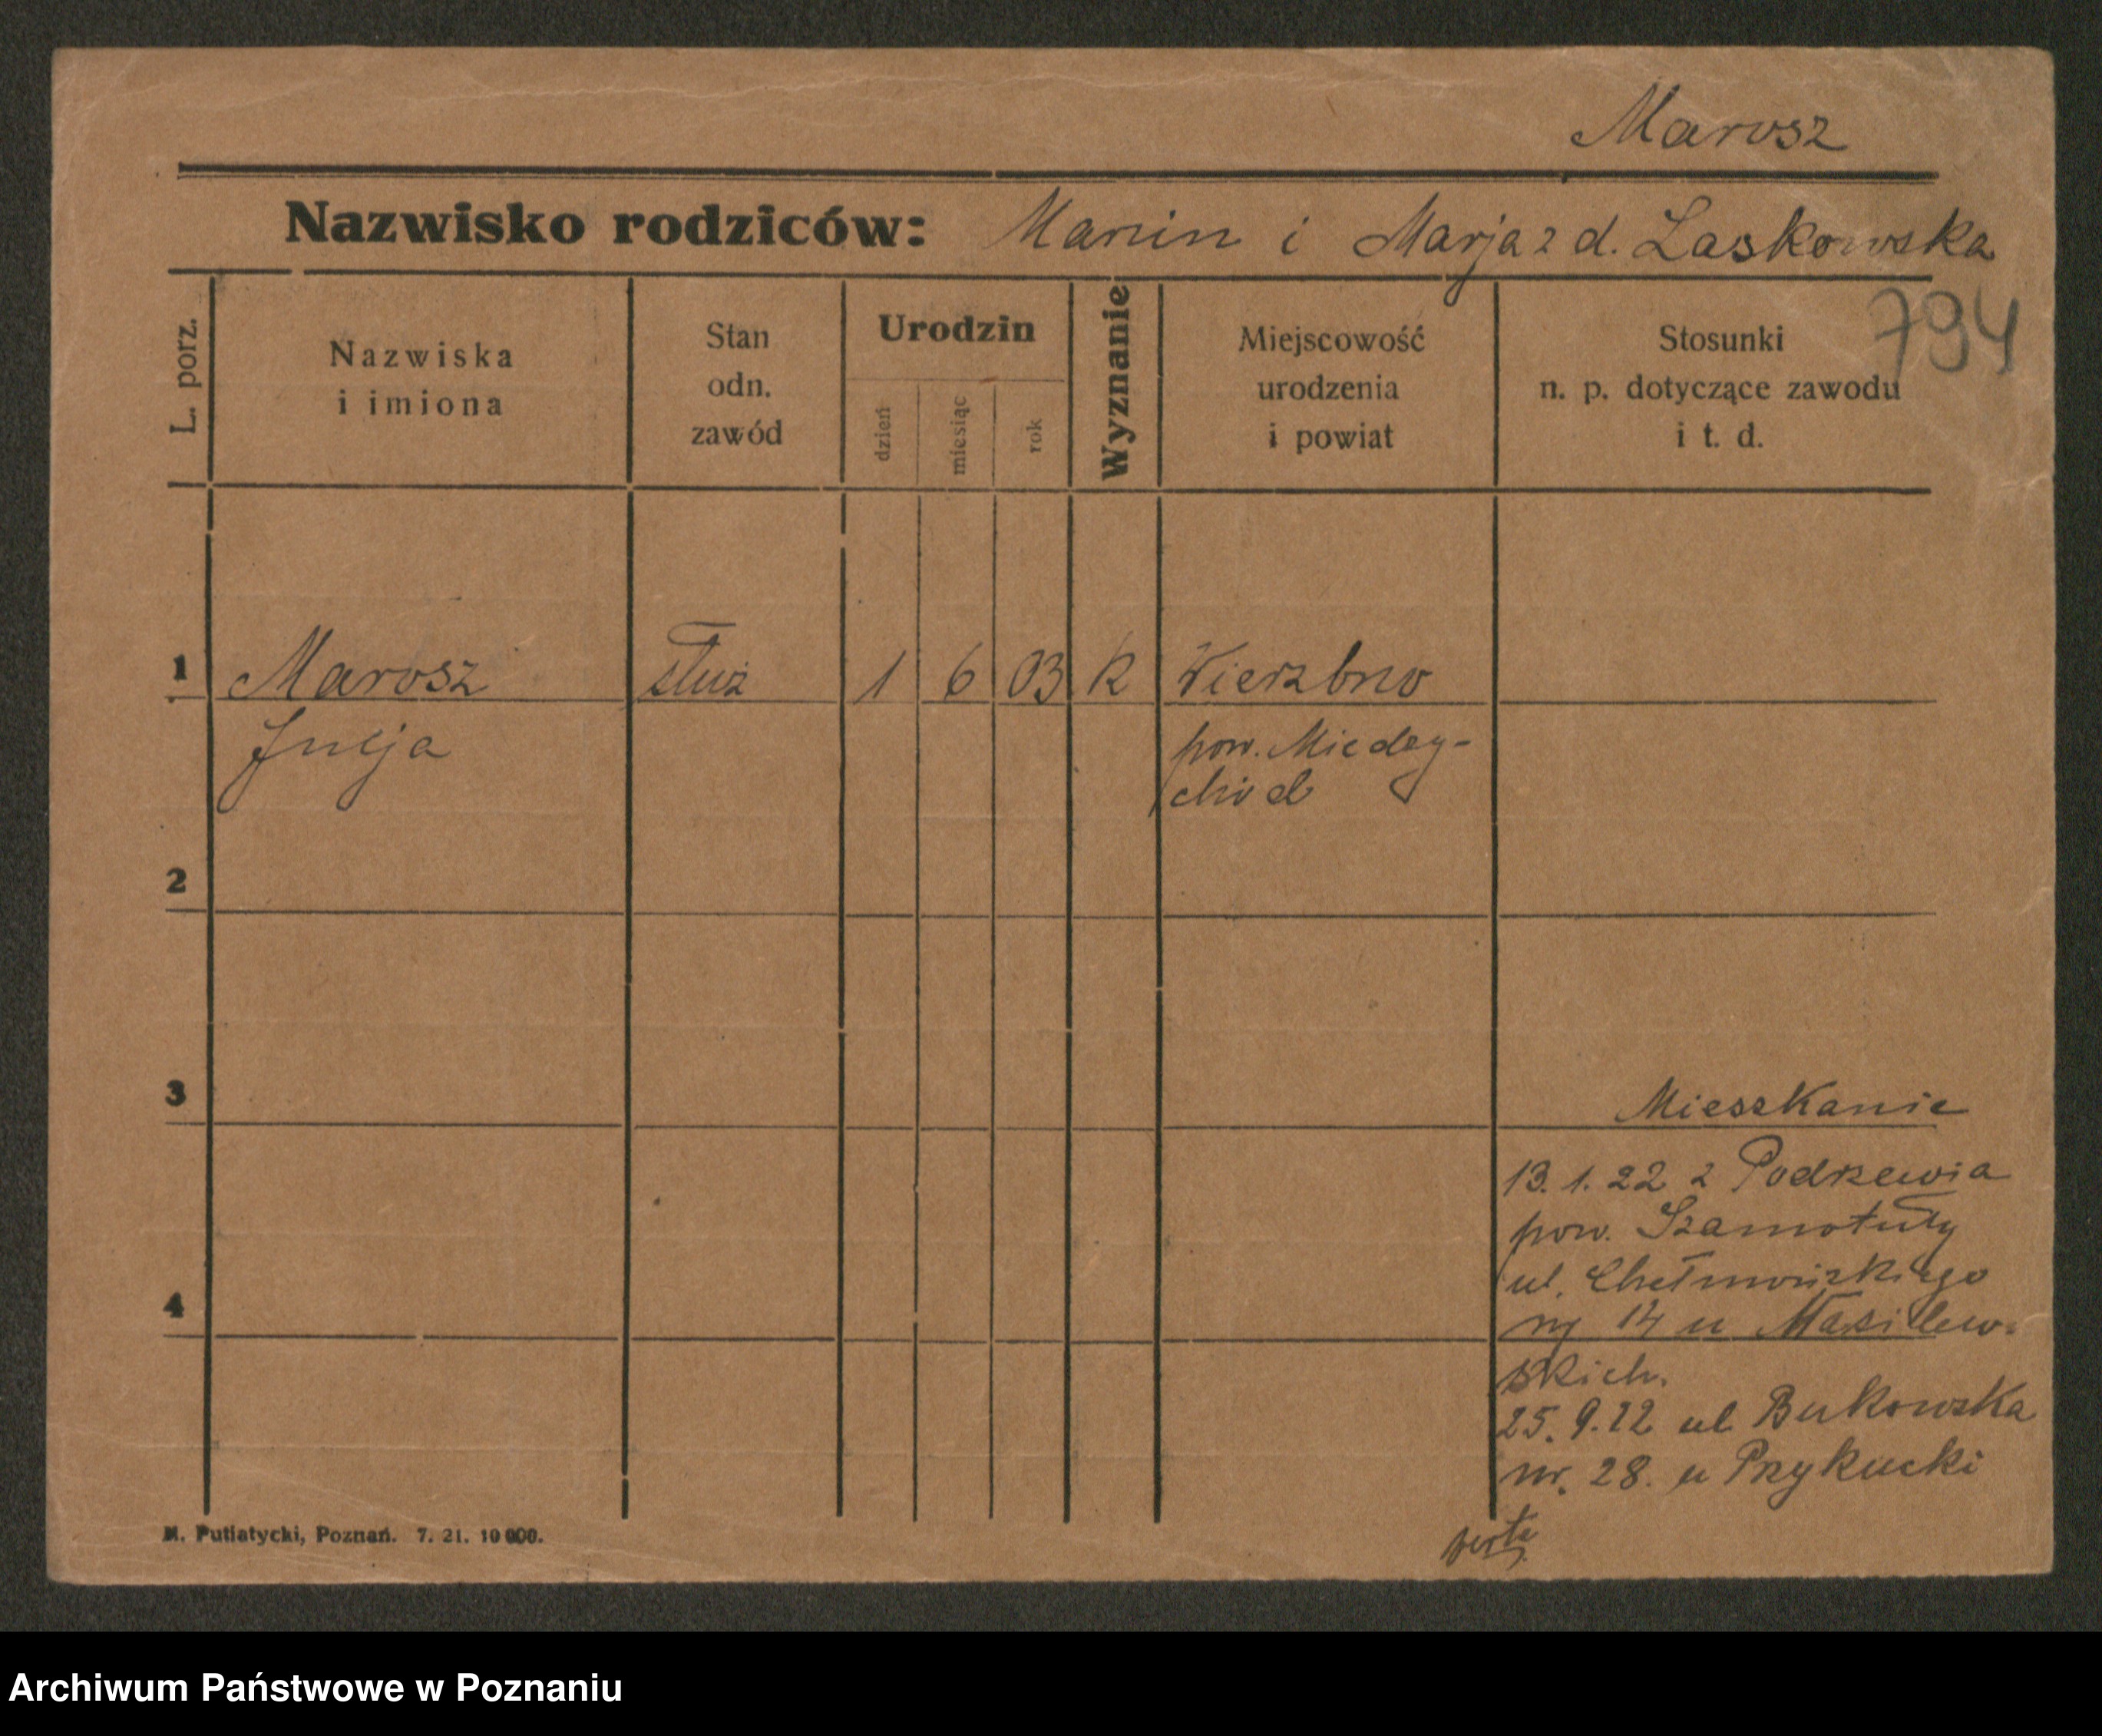 Marosz
Nazwisko rodziców: Marcin i Marja z d. Laskowska
794
L. porz.
Nazwiska
i imiona
Stan
odn.
zawód
Urodzin
dzień
miesiąc
rok
Wyznanie
Miejscowość
urodzenia
i powiat
Stosunki
n. p. dotyczące zawodu
i t. d.
1 Marosz służ 1 6 03 k Wierzbno
Julja pow. Między-
chód
2
3
Mieszkanie
13. 1. 22 z Podrzewia
pow. Szamotuły
ul. Chełmońskiego
4
nr 14 u Masilew-
skich.
25. 9. 22 ul Bukowska
nr. 28. u Przykucki
verte
M. Putiatycki, Poznań. 7. 21. 10 000.
Archiwum Państwowe w Poznaniu